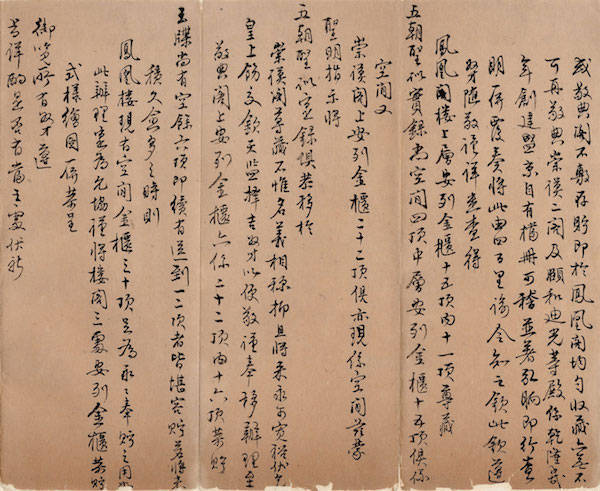 或敬典閣不敷存貯即於鳳凰閣均勻收藏無不
可再敬典崇謨二閣及頤和迪光等殿係乾隆
年創建盛京自有檔冊可稽並著弘晌即行查
明一併覆奏將此由四百里諭令知之欽此欽遵
隨敬謹詳查得
鳳凰閣樓上層安列金櫃十五頂內十一頂尊藏
五朝聖訓實錄尚空閒四頂中層安列金櫃十五頂俱係
空閒又
崇謨閣上安列金櫃二十二頂俱亦現係空閒茲蒙
聖明指示將
五朝聖訓實錄俱恭移於
崇謨閣尊藏不惟名義相稱抑且將來永可寬裕伏乞
皇上飭交欽天監擇吉以便敬謹奉移辦理至
敬典閣上安列金櫃六係二十二頂內十六頂恭貯
玉牒尚有空餘六頂即續有送到一二項者皆堪容貯若將來
積久愈多之時則
鳳凰樓現有空閒金櫃三十頂足為永奉貯之用
此辦理實為允協謹將樓閣三處安列金櫃恭貯
式樣繪圖一併恭呈
御覽所有
旨詳酌是否有當之處伏祈